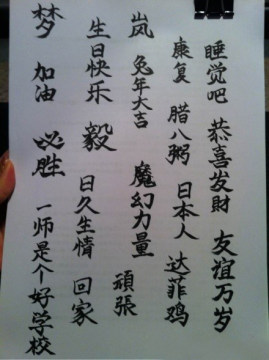 睡觉吧 恭喜发財 友谊万岁
康复 腊八粥 日本人 达菲鸡
岚 兔年大吉 魔幻力量 頑張
生日快乐 毅 日久生情 回家
梦 加油 必胜 一师是个好学校